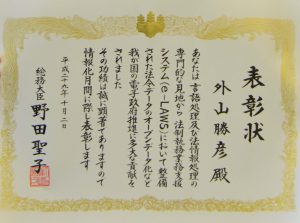 表彰状
外山勝彦 殿
あなたは言語処理及び法情報処理の
専門的な見地から法制執務業務支援
システム(e-LAWS)において整備
された法令データのオープンデータ化など
我が国の電子政府推進に多大な貢献を
されました
その功績は誠に顕著でありますので
情報化月間に際し表彰します
平成二十九年十月二日
総務大臣 野田聖子